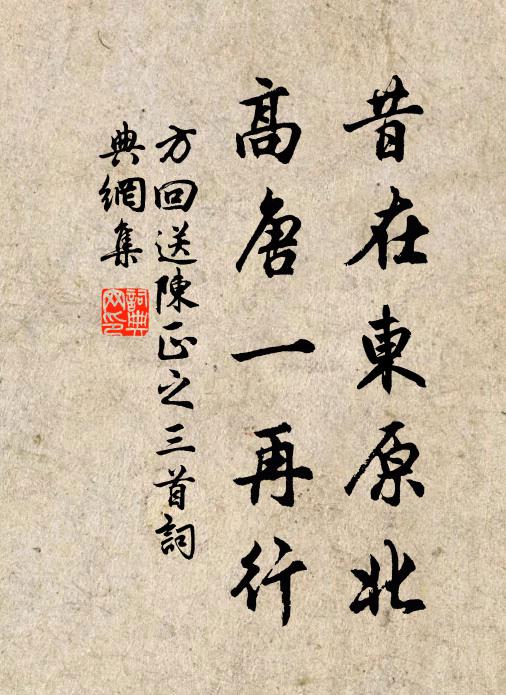 昔在東原北
高唐一再行
方回送陳正之三首詞
典網集
詞典
网印